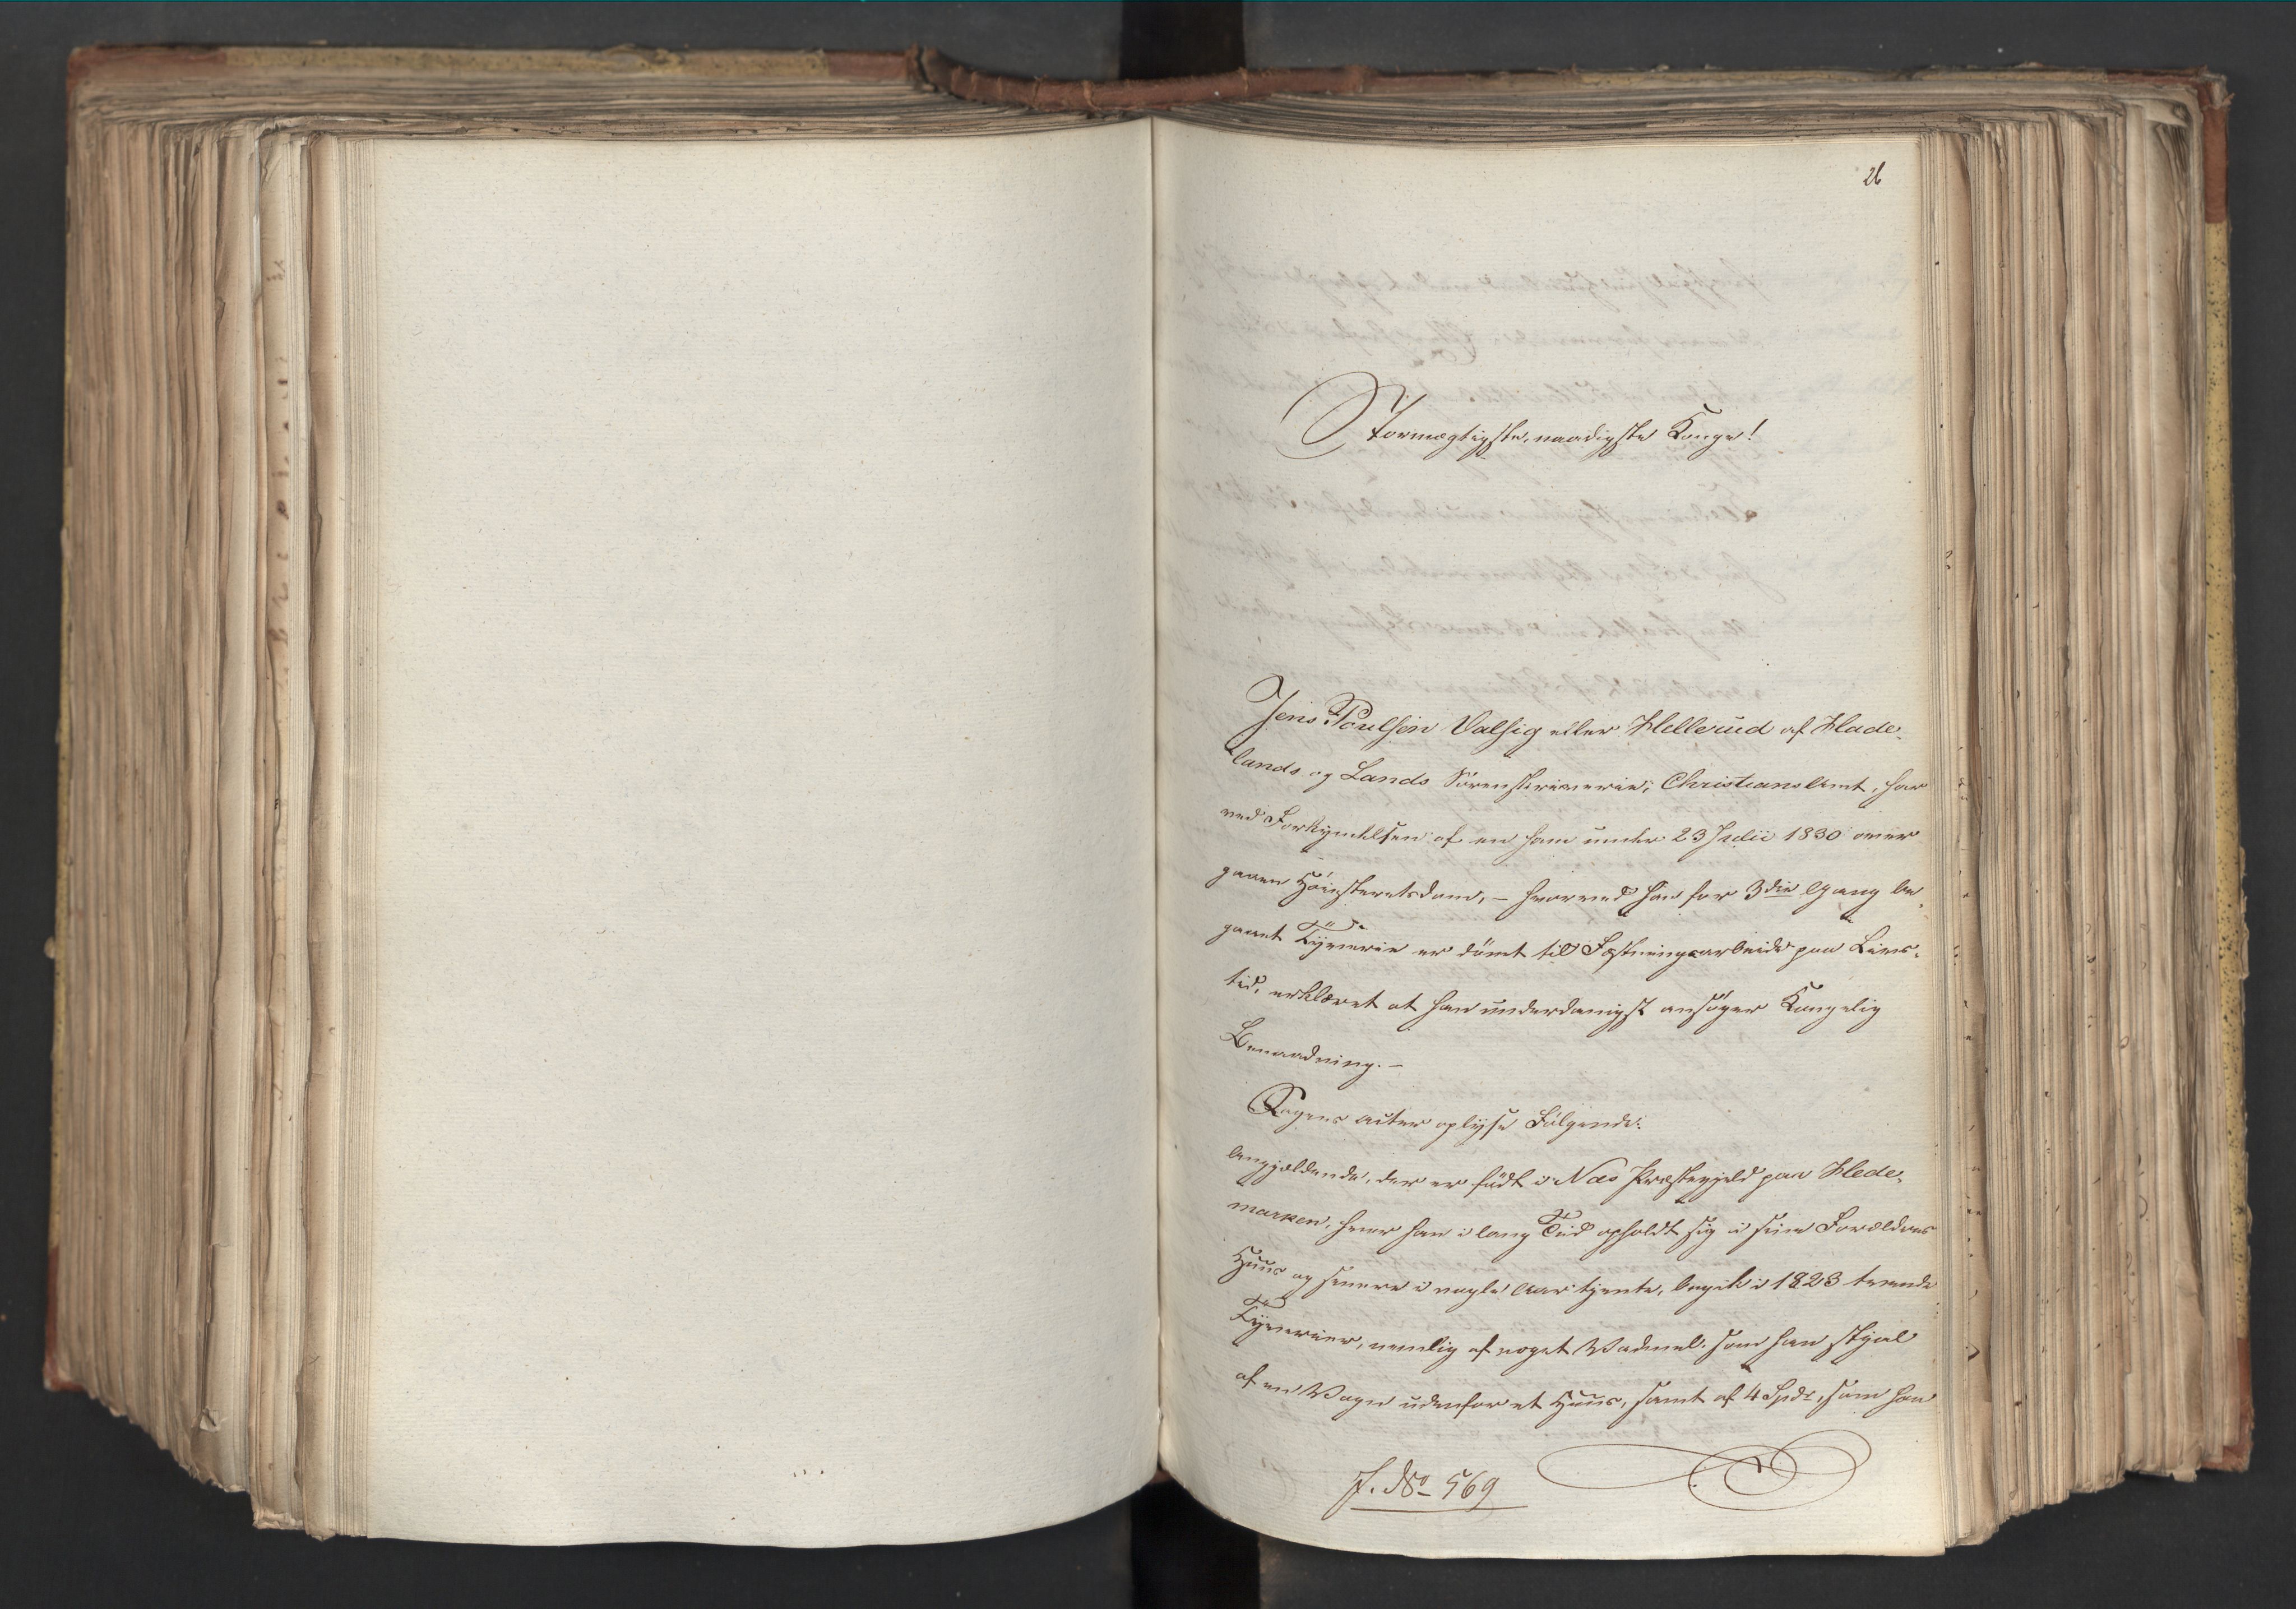 26
Stormægtigste, naadigste Konge!
Jens Poulsen Valsig eller Hellerud af Hade-
lands og Lands Sorenskriverie, Christians Amt, har
ved Forkyndelsen af en ham under 23 Julii 1830 over-
gaaen Høiesteretsdom, – hvorved han for 3die Gang be-
gaaet Tyverie er dömt til Fæstningsarbeide paa Livs-
tid, erklæret at han underdanigst ansøger Kongelig
Benaadning. –
Sagens Acter oplyse Fölgende:
Angjældende, der er födt i Næs Præstegjeld paa Hede-
marken, hvor han i lang Tid opholdt sig i sine Forældres
Huus og senere i nogle Aar tjente, begik i 1823 tvende
Tyverier, nemlig af noget Vadmel, som han stjal
af en Vogn udenfor et Huus, samt af 4 Spdr, som han
J. No 569